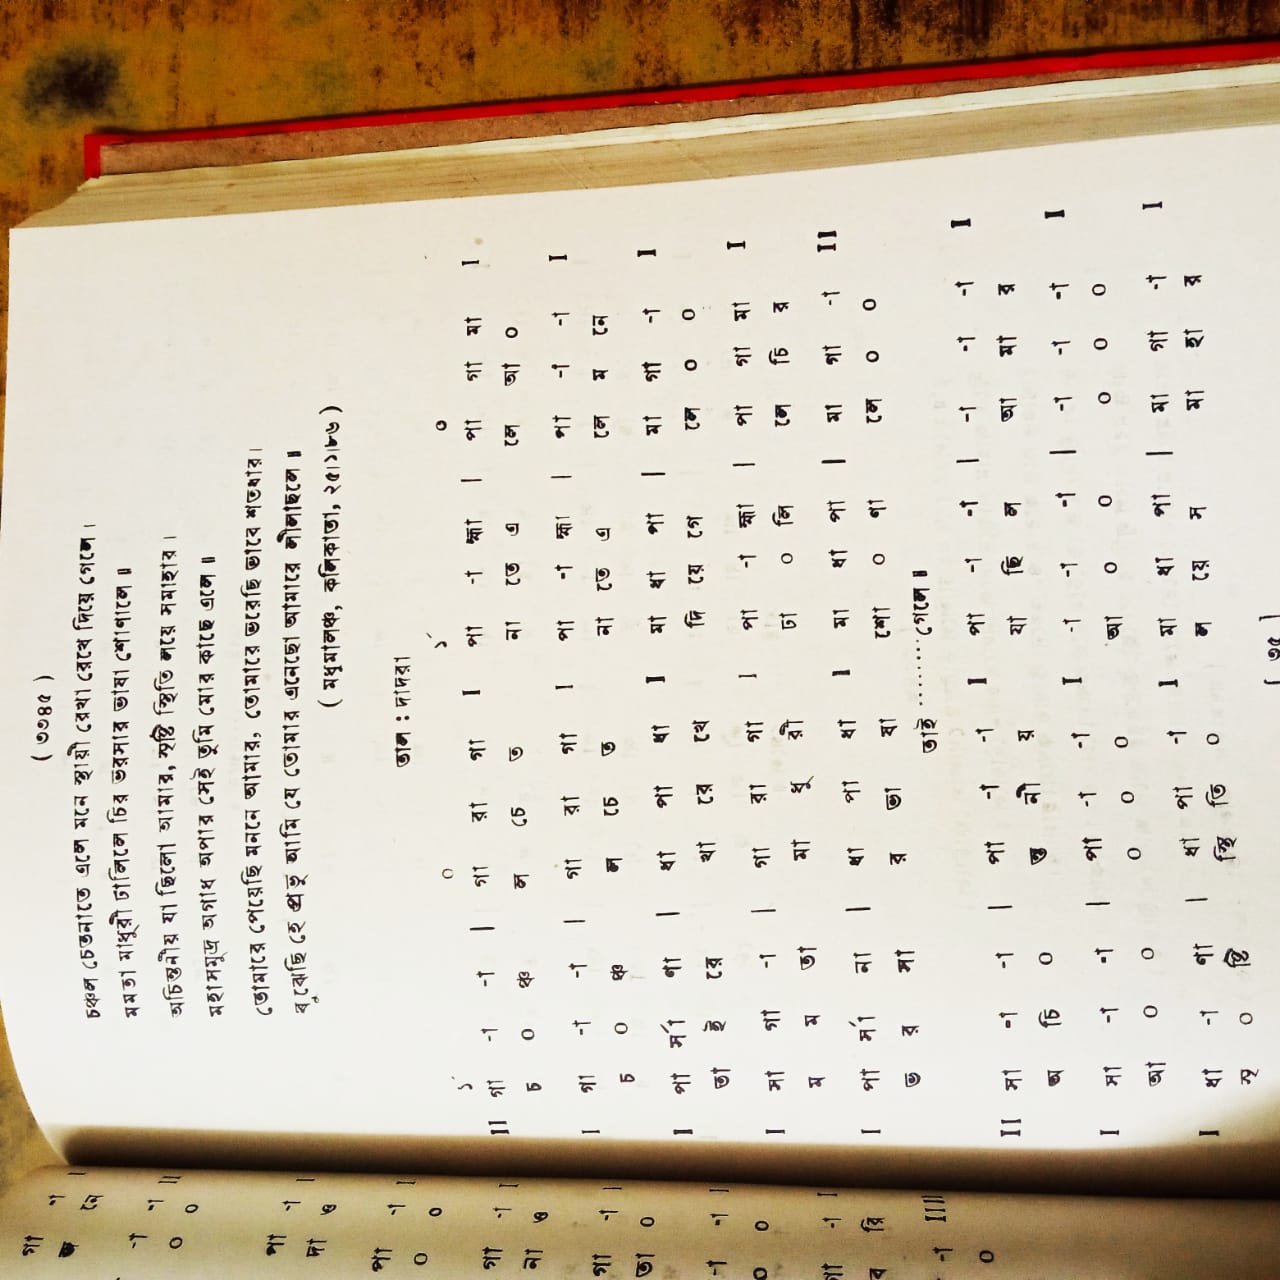 ( ৩৩৪৫ )
চঞ্চল চেতনাতে এলে মনে স্থায়ী রেখা রেখে দিয়ে গেলে।
মমতা মাধুরী ঢালিলে চির ভরসার ভাষা শোণালে॥
অচিন্তনীয় যা ছিলো আমার, সৃষ্টি স্থিতি লয়ে সমাহার।
মহাসমুদ্র অগাধ অপার সেই তুমি মোর কাছে এলে॥
তোমারে পেয়েছি মননে আমার, তোমারে ভরেছি ভাবে শতধার।
বুঝেছি হে প্রভু আমি যে তোমার এনেছো আমারে লীলাছলে॥
( মধুমালঞ্চ, কলিকাতা, ২৫।১।৮৬ )
তাল : দাদরা
১´ ০ ১´ ০
II গা -া -া | গা রা গা I পা -া হ্মা | পা গা মা I
চ ০ ঞ্চ ল চে ত না তে এ লে আ ০
I গা -া -া | গা রা গা I পা -া হ্মা | পা -া -া I
চ ০ ঞ্চ ল চে ত না তে এ লে ম নে
I পা র্সা ণা | ধা পা ধা I মা ধা পা | মা গা -া I
তা ই রে খা রে খে দি য়ে গে লে ০ ০
I সা গা -া | গা রা গা I পা -া হ্মা | পা গা মা I
ম ম তা মা ধু রী ঢা ০ লি লে চি র
I পা র্সা না | ধা পা ধা I মা ধা পা | মা গা -া II
ভ র সা র ভা ষা শো ০ ণা লে ০ ০
তাই ........ গেলে॥
II সা -া -া | পা -া -া I পা -া -া | -া -া -া I
অ চি ০ ন্ত নী য় যা ছি ল আ মা র
I সা -া -া | পা -া -া I -া -া -া | -া -া -া I
আ ০ ০ ০ ০ ০ আ ০ ০ ০ ০ ০
I ধা -া ণা | ধা পা -া I মা ধা পা | মা গা -া I
সৃ ০ ষ্টি স্থি তি ০ ল য়ে স মা হা র